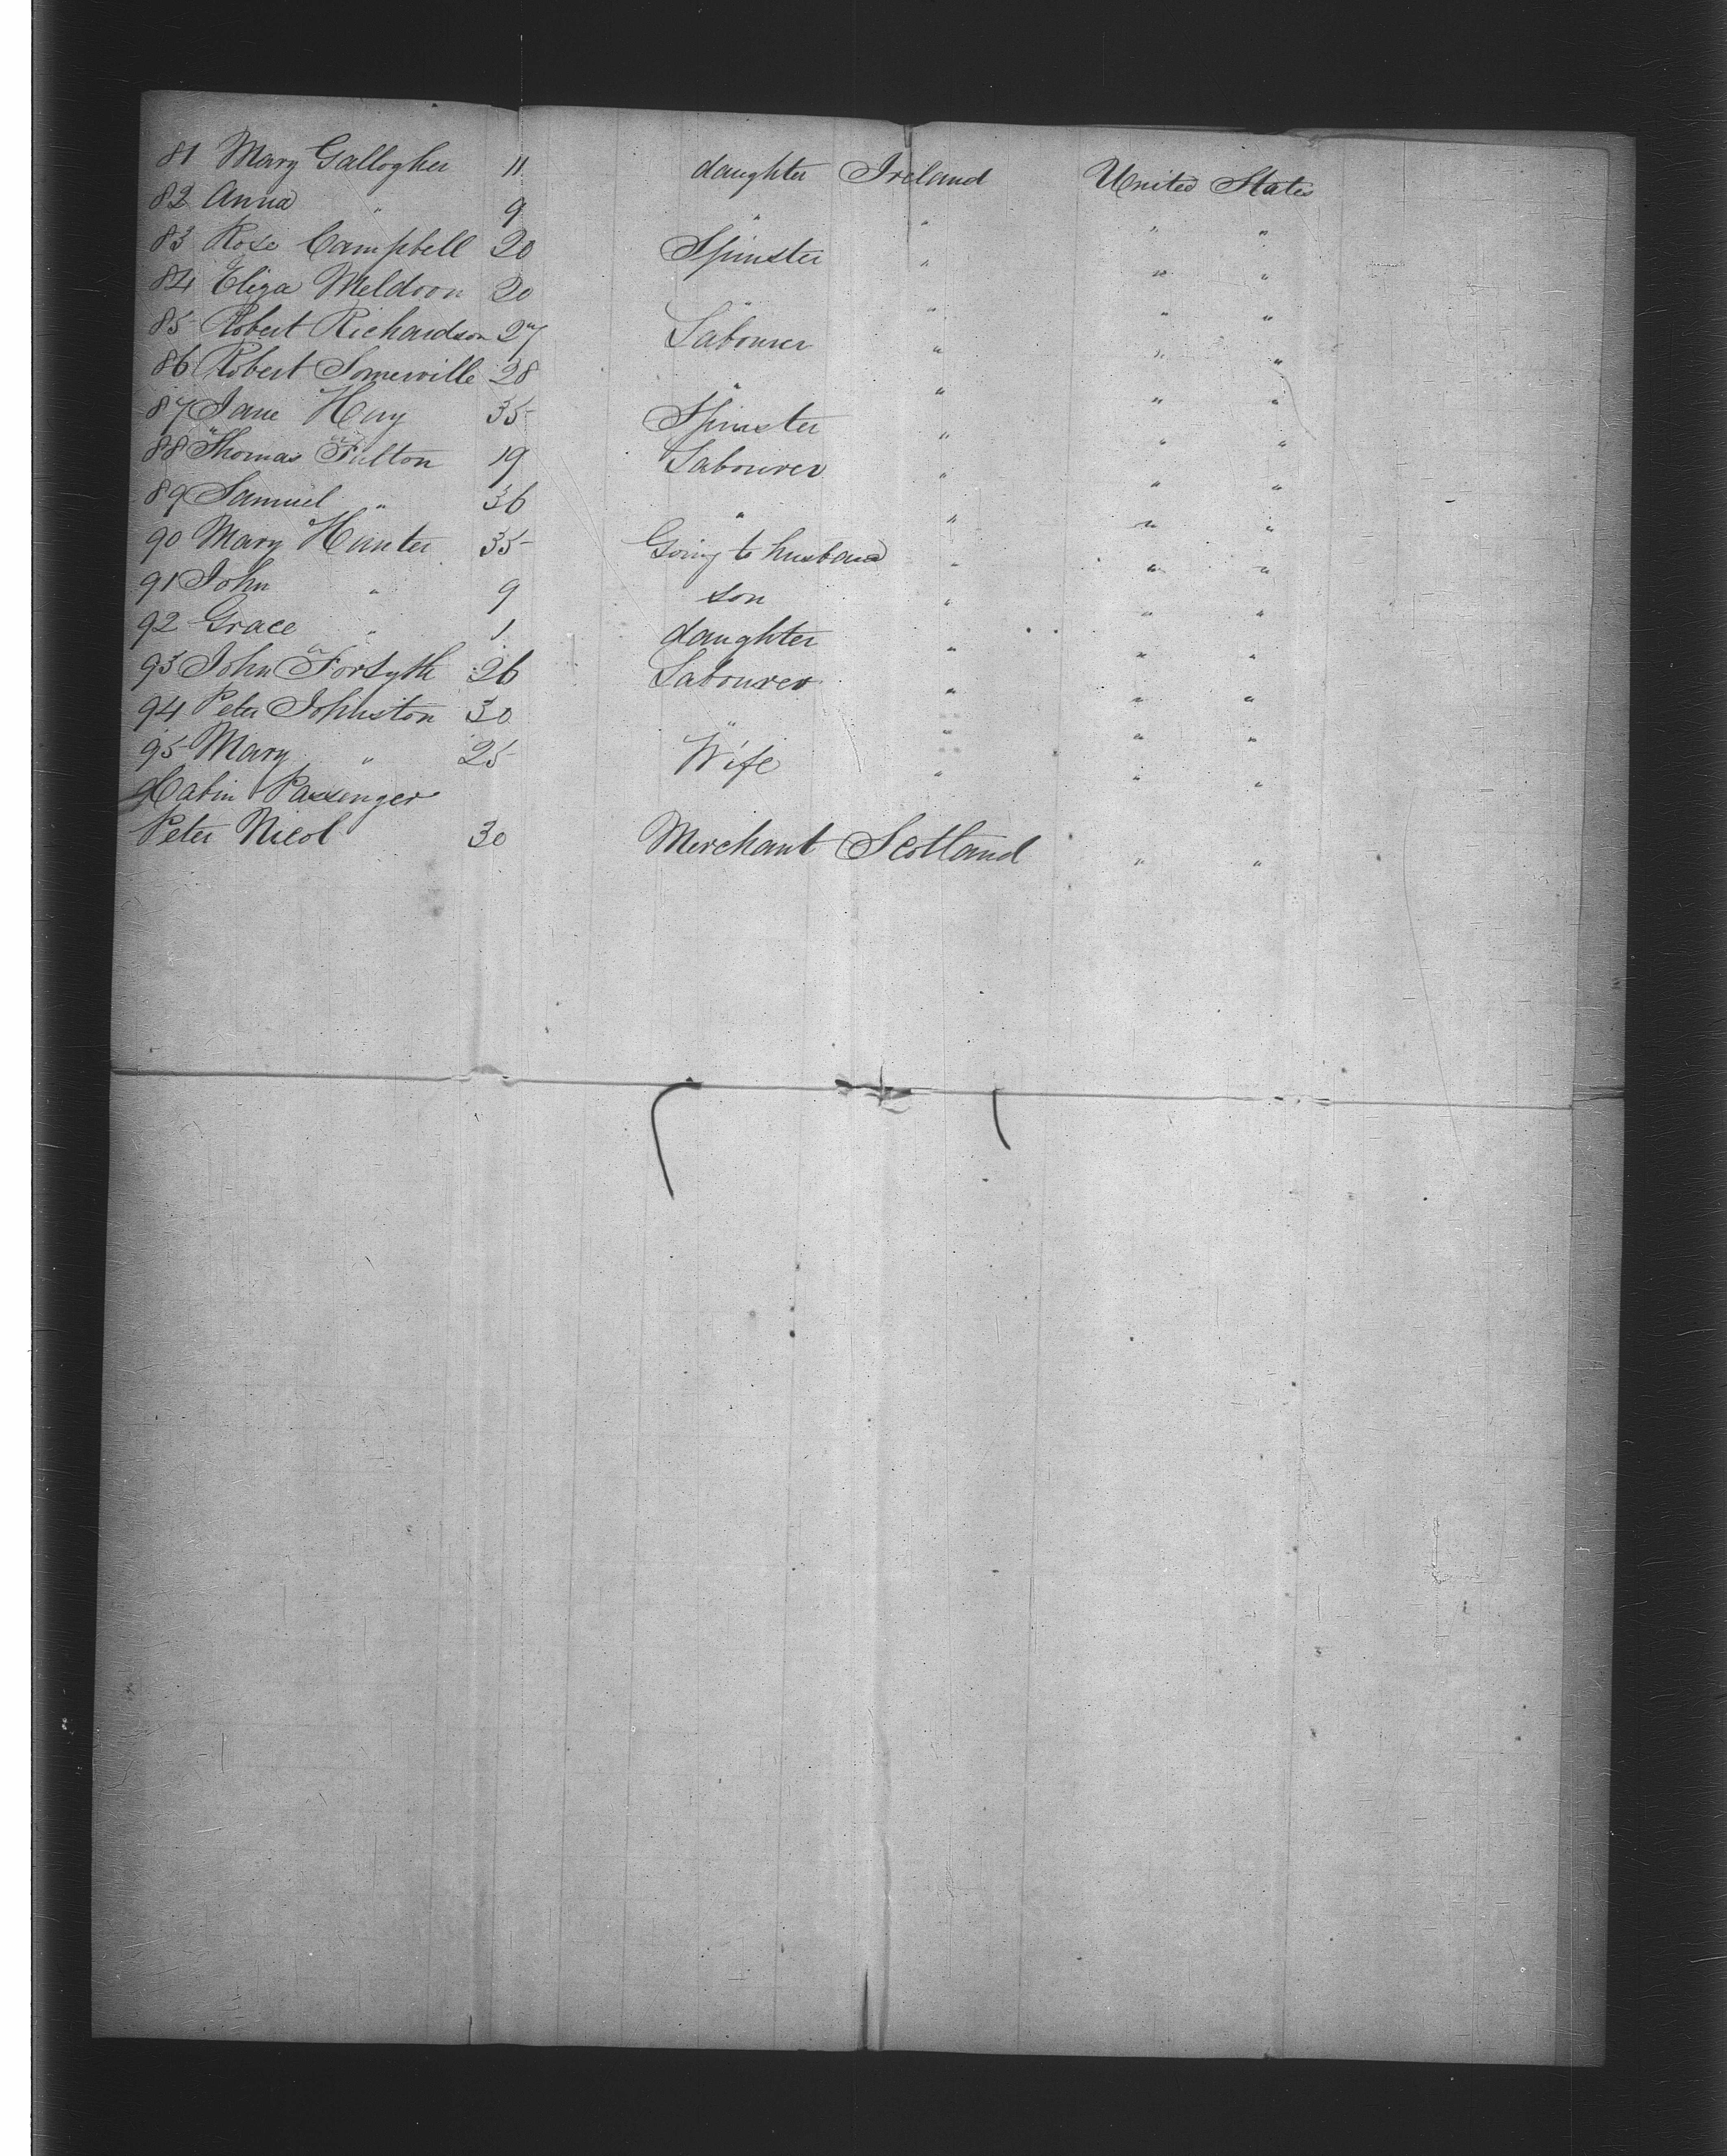 81 Mary Gallogher 11 daughter Ireland United States
82 Anna " 9 " " " "
83 Rose Campbell 20 Spinster " " "
84 Eliza Meldoon 20 " " " "
85 Robert Richardson 27 Labourer " " "
86 Robert Somerville 28 " " " "
87 Jane Hay 35 Spinster " " "
88 Thomas Fulton 19 Labourer " " "
89 Samuel " 36 " " " "
90 Mary Hunter 35 Going to husband " " "
91 John " 9 son " " "
92 Grace " 1 daughter " " "
93 John Forsyth 26 Labourer " " "
94 Peter Johnston 30 " " " "
95 Mary " 25 Wife " " "
Cabin Passenger
Peter Nicol 30 Merchant Scotland " "